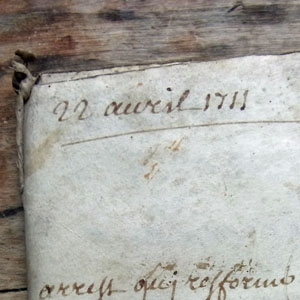 22 avril 1711
arrest qui refforme